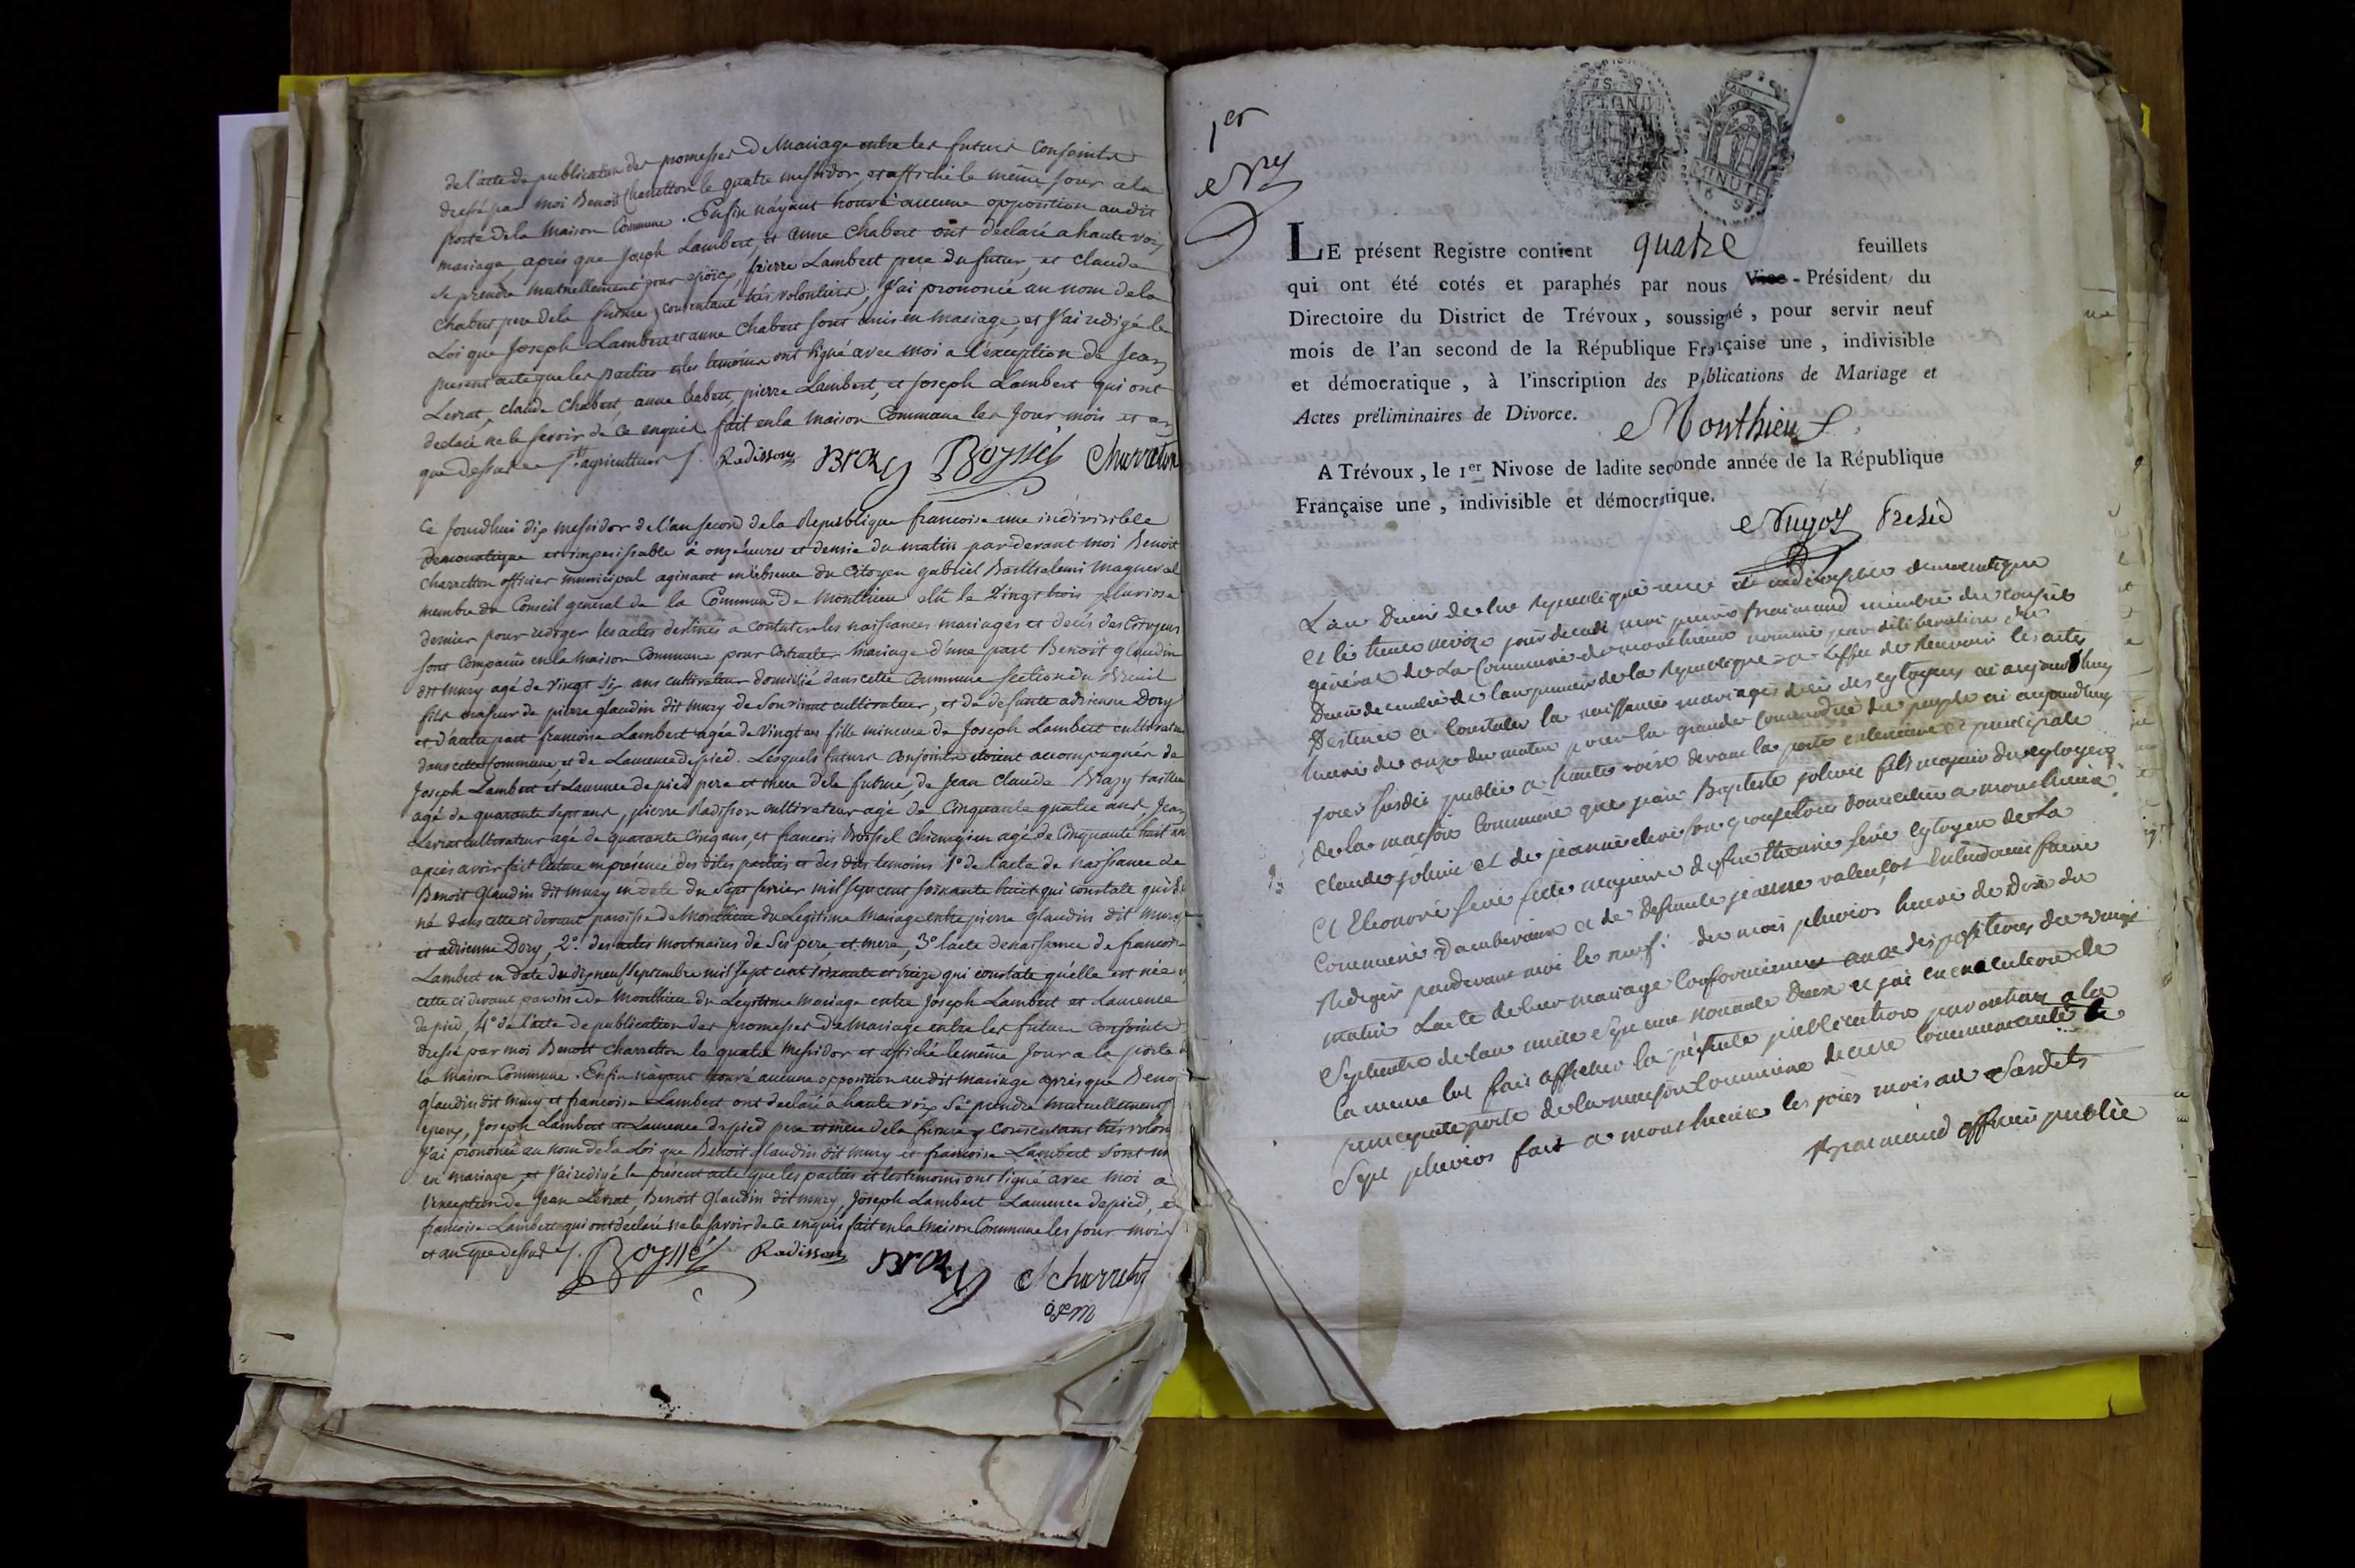 de l'acte de publication des promesses de Mariage entre les futurs Conjoints
dressé par moi Benoit Charretton le quatre messidor, et affiché le même jour a la
porte de la Maison Commune. Enfin n'ayant trouvé aucune opposition audit
mariage, après que Joseph Lambert, et anne Chabert ont declaré a haute voix
se prendre mutuellement pour epoux, pierre Lambert pere du futur, et claude
Chabert pere de la future, consentant très volontiers, J'ai prononcé au nom de la
Loi que Joseph Lambert et anne Chabert sont unis en Mariage, et J'ai redigé le
present acte que les parties et les temoins ont signé avec moi a l'exception de Jean
Levrat, claude Chabert, anne Chabert, pierre Lambert, et Joseph Lambert qui ont
declaré ne le savoir de ce enquis fait en la Maison Commune les jour mois et an
que dessus agriculteur Radisson Brazy Boyssel Charreton
Ce Jourdhui dix messidor de l'an second de la Republique francoise une indivisible
Democratique et imperissable à onze heures et demie du matin par devant moi Benoit
Charretton officier municipal agissant en l'absence du Citoyen gabriel Barthelemi Magneval
membre du Conseil general de la Commune de Monthieu elu le Vingt trois pluviose
dernier pour rediger les actes destinés a constater les naissances mariages et decès des Citoyens
sont Comparus en la Maison Commune pour Contracter Mariage d'une part Benoit glaudin
dit mury agé de Vingt six ans cultivateur domicilié dans cette Commune section du Breuil
fils majeur de pierre glaudin dit mury de son vivant cultivateur, et de defunte adrienne Dory
et d'autre part francoise Lambert agée de Vingt ans fille mineure de Joseph Lambert cultivateur
dans cette commune, et de Laurence depied. Lesquels futurs Conjoints étoient accompagnés de
Joseph Lambert et Laurence depied pere et mere de la future, de Jean Claude Brazy tailleur
agé de quarante sept ans, pierre Radisson cultivateur agé de Cinquante quatre ans, Jean
Levrat cultivateur agé de quarante Cinq ans, et francois Boissel Chirurgien agé de Cinquante huit ans
après avoir fait lecture en présence des dites parties et des dits temoins 1º de l'acte de naissance de
Benoit Glaudin dit mury en date du Sept fevrier mil sept cent soixante huit qui constate qu'il est
né dans cette ci devant paroisse de Monthieu du Legitime Mariage entre pierre glaudin dit mury
et adrienne Dory, 2º. des actes mortuaires de Ses pere, et mere, 3º l'acte de naissance de francoise
Lambert en date du dix neuf Septembre mil sept cent soixante et treize qui constate qu'elle est née
cette ci devant paroisse de Monthieu du Legitime Mariage entre Joseph Lambert et Laurence
depied, 4º de l'acte de publication des promesses de Mariage entre les futurs Conjoints
dressé par moi Benoit Charretton le quatre Messidor et affiché le même Jour a la porte
la Maison Commune. Enfin n'ayant trouvé aucune opposition audit Mariage après que Benoit
glaudin dit mury et francoise Lambert ont declaré à haute voix Se prendre mutuellement
epoux, Joseph Lambert et Laurence depied pere et mere de la future y consentant très
J'ai prononcé au nom de la Loi que Benoit glaudin dit mury et francoise Lambert sont
en mariage, et J'ai redigé le présent acte que les parties et les temoins ont signé avec moi a
l'exception de Jean Levrat, Benoit Glaudin dit mury, Joseph Lambert Laurence depied, et
francoise Lambert qui ont declaré ne le savoir de ce enquis fait en la Maison Commune les jour mois
et an que dessus. Boyssel Radisson Brazy Charreton
1er
MINUTE
LE présent Registre contient quatre feuillets
qui ont été cotés et paraphés par nous Vice-Président du
Directoire du District de Trévoux, soussigné, pour servir neuf
mois de l'an second de la République Française une, indivisible
et démocratique, à l'inscription des Publications de Mariage et
Actes préliminaires de Divorce. Monthieu
A Trévoux, le 1er Nivose de ladite seconde année de la République
Française une, indivisible et démocratique.
L'an Deux de la republique une et indivisible democratique
et le trente nivoze jour decadi moi pierre membre du conseil
general de la Commune de monthieux nommé par deliberation du
Deux decembre de l'an premier de la Republique a l'effet de recevoir les actes
Destinés a Constater la naissances mariages deces des cytoyens ai aujourdhuy
heure de onze du matin pour la grande Commodité du peuple ai aujourdhuy
jour susdit publié a haute voix devant la porte exterieure et principale
de la maison Commune que jean Baptiste jolivie fils majeur du cytoyen
Claude jolivie et de jeanne domicilié a monthieux
Et Eleonore seve fille majeure de fut thoine seve cytoyen de La
Commune Damberieux et de Defunte jeanne entendoient faire
Rediger pardevant moi le neuf du mois pluvios heure de Dix du
matin Lacte de leur mariage Conformement aux dispositions du vingt
Septembre de l'an mille sept cent nonante Deux et jai en execution de
la meme loi fait afficher la présente publication a la
porte de la maison Commune de cette Communauté le
Sept pluvios fait a monthieux les jour mois an susdits
officié public